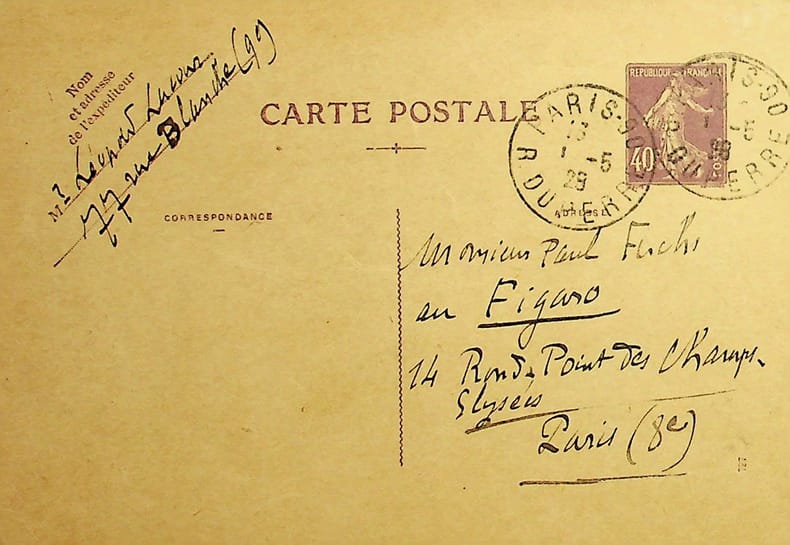 Nom
et adresse
de l'expéditeur
Mr Léopold Lacour
77 rue Blanche (9e)
CARTE POSTALE
REPUBLIQUE FRANÇAISE
40
PARIS-90
13
1 -5
29
R. DUPERRE
CORRESPONDANCE
ADRESSE
Monsieur Paul Fuchs
au Figaro
14 Rond-Point des Champs-
Elysées
Paris (8e)